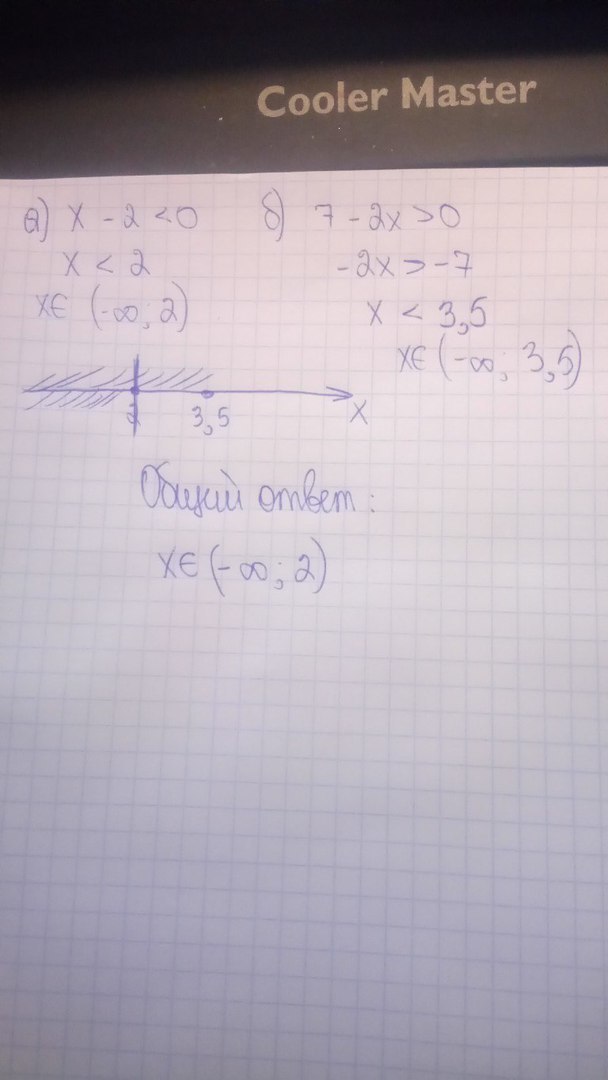 Cooler Master
а) x - 2 < 0
x < 2
x∈ (-∞; 2)
б) 7 - 2x > 0
-2x > -7
x < 3,5
x∈ (-∞; 3,5)
2 3,5 x
Общий ответ:
x∈ (-∞; 2)